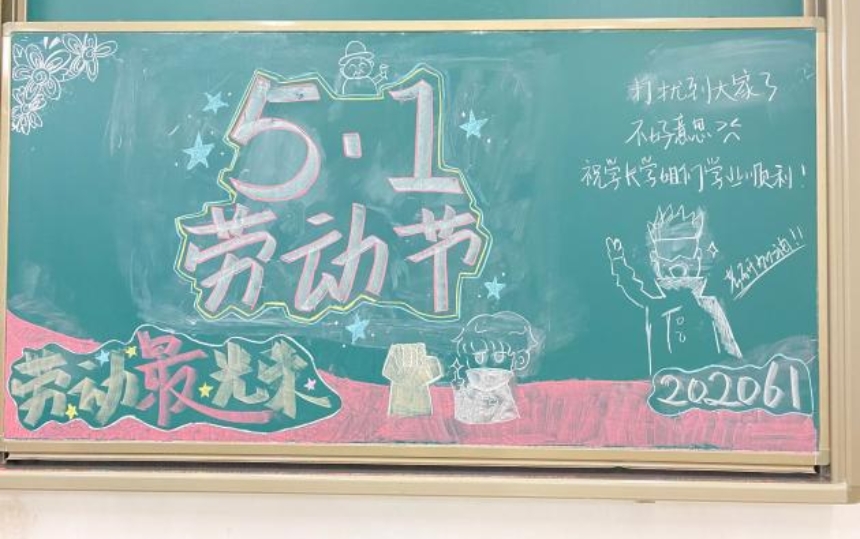 5·1
劳动节
打扰到大家了
不好意思
祝学长学姐们学业顺利！
考研加油!!
劳动最光荣
202061